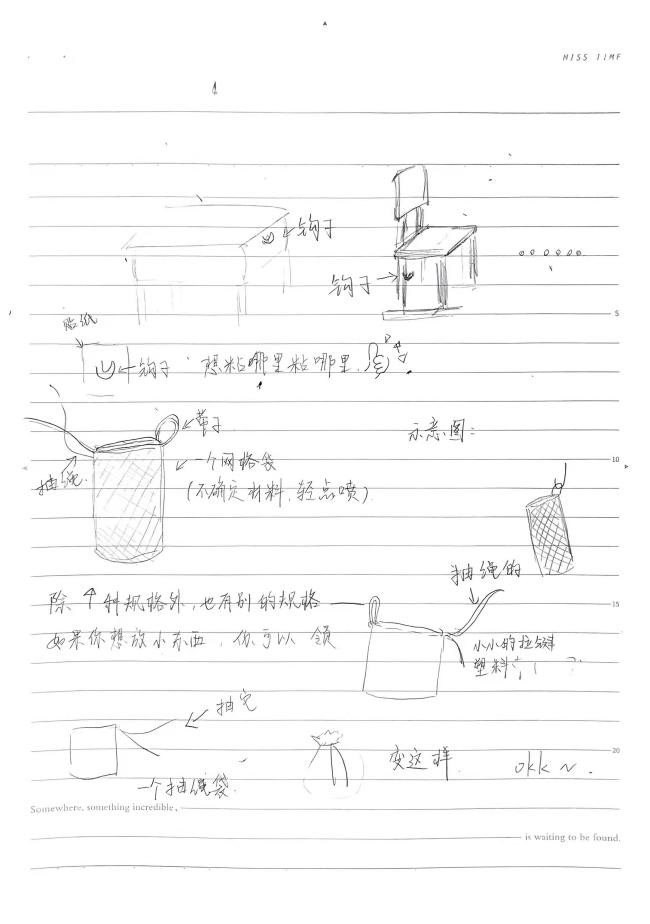 MISS TIME
钩子
钩子
5
贴纸
钩子 想粘哪里粘哪里.
示意图:
抽绳
一个网格袋
10
(不确定材料,轻点喷)
抽绳的
除个斜规格外,也有别的规格
15
如果你想放小东西,你可以
小小的拉键
塑料
抽完
变这样.
okk~.
20
一个抽绳袋.
Somewhere, something incredible,
is waiting to be found.